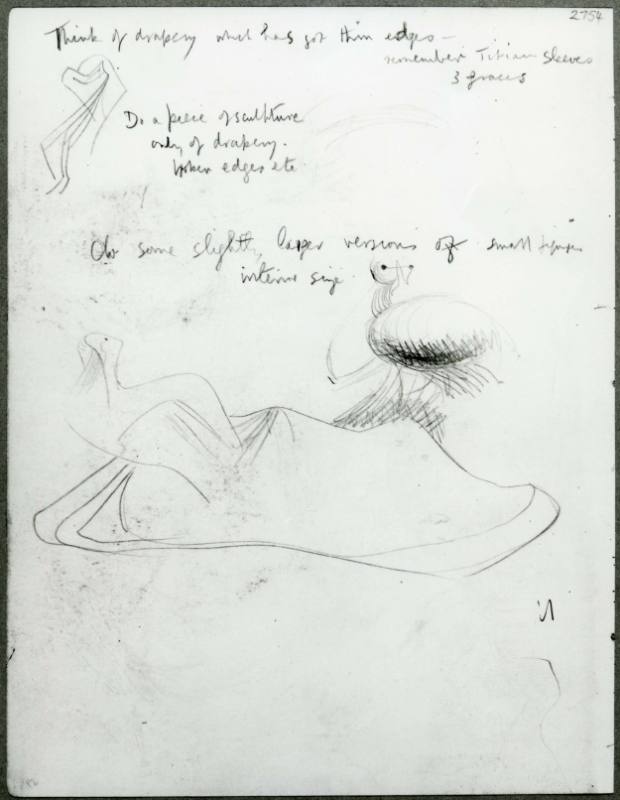 2754
Think of drapery which has got thin edges —
remember Titian sleeves
3 graces
Do a piece of sculpture
only of drapery.
broken edges etc
Do some slightly larger versions of small
size